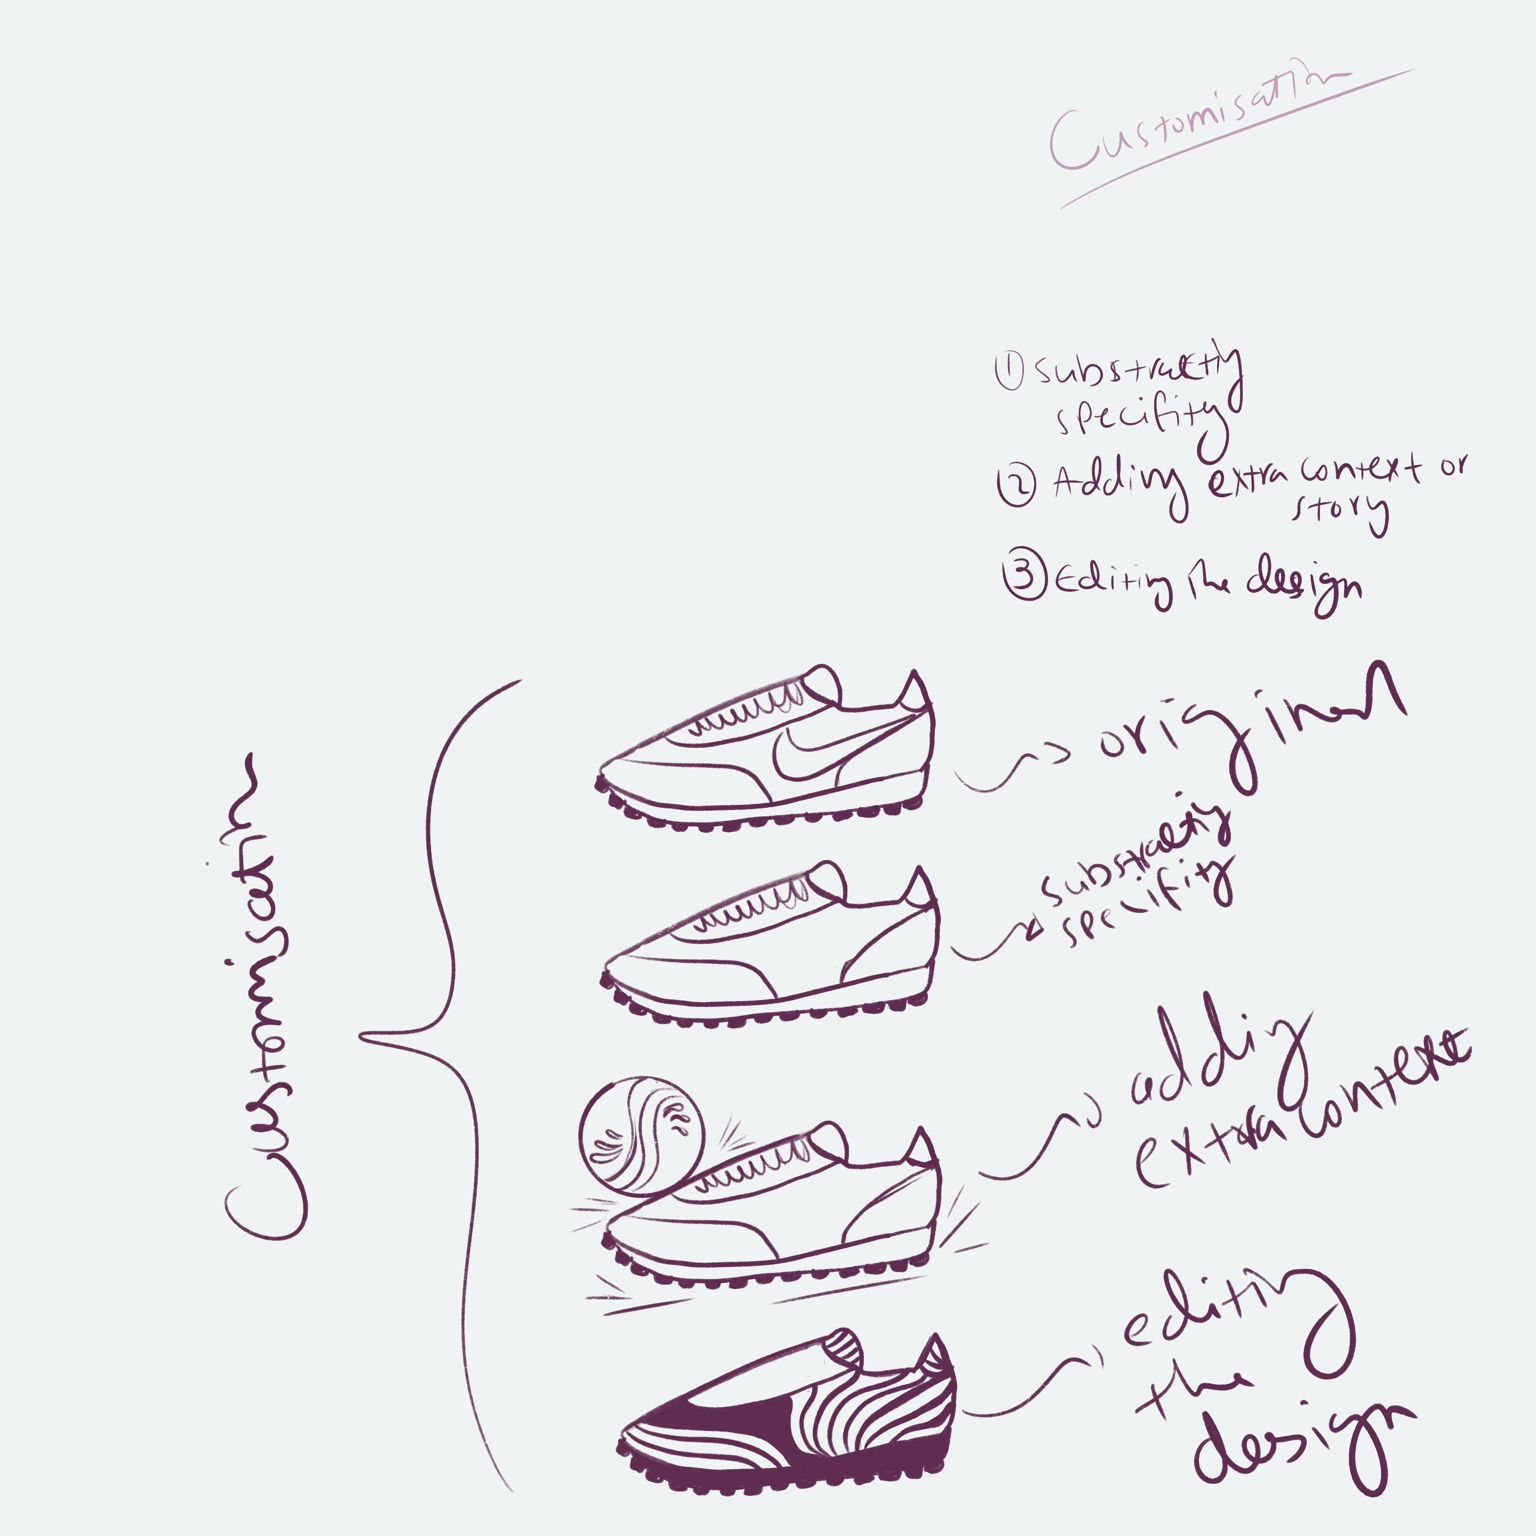 Customisation
① substractiy
specifity
② Adding extra context or
story
③ Editing the design
Customisation
original
substractiy
specifity
addiy
extra context
editiy
the
design